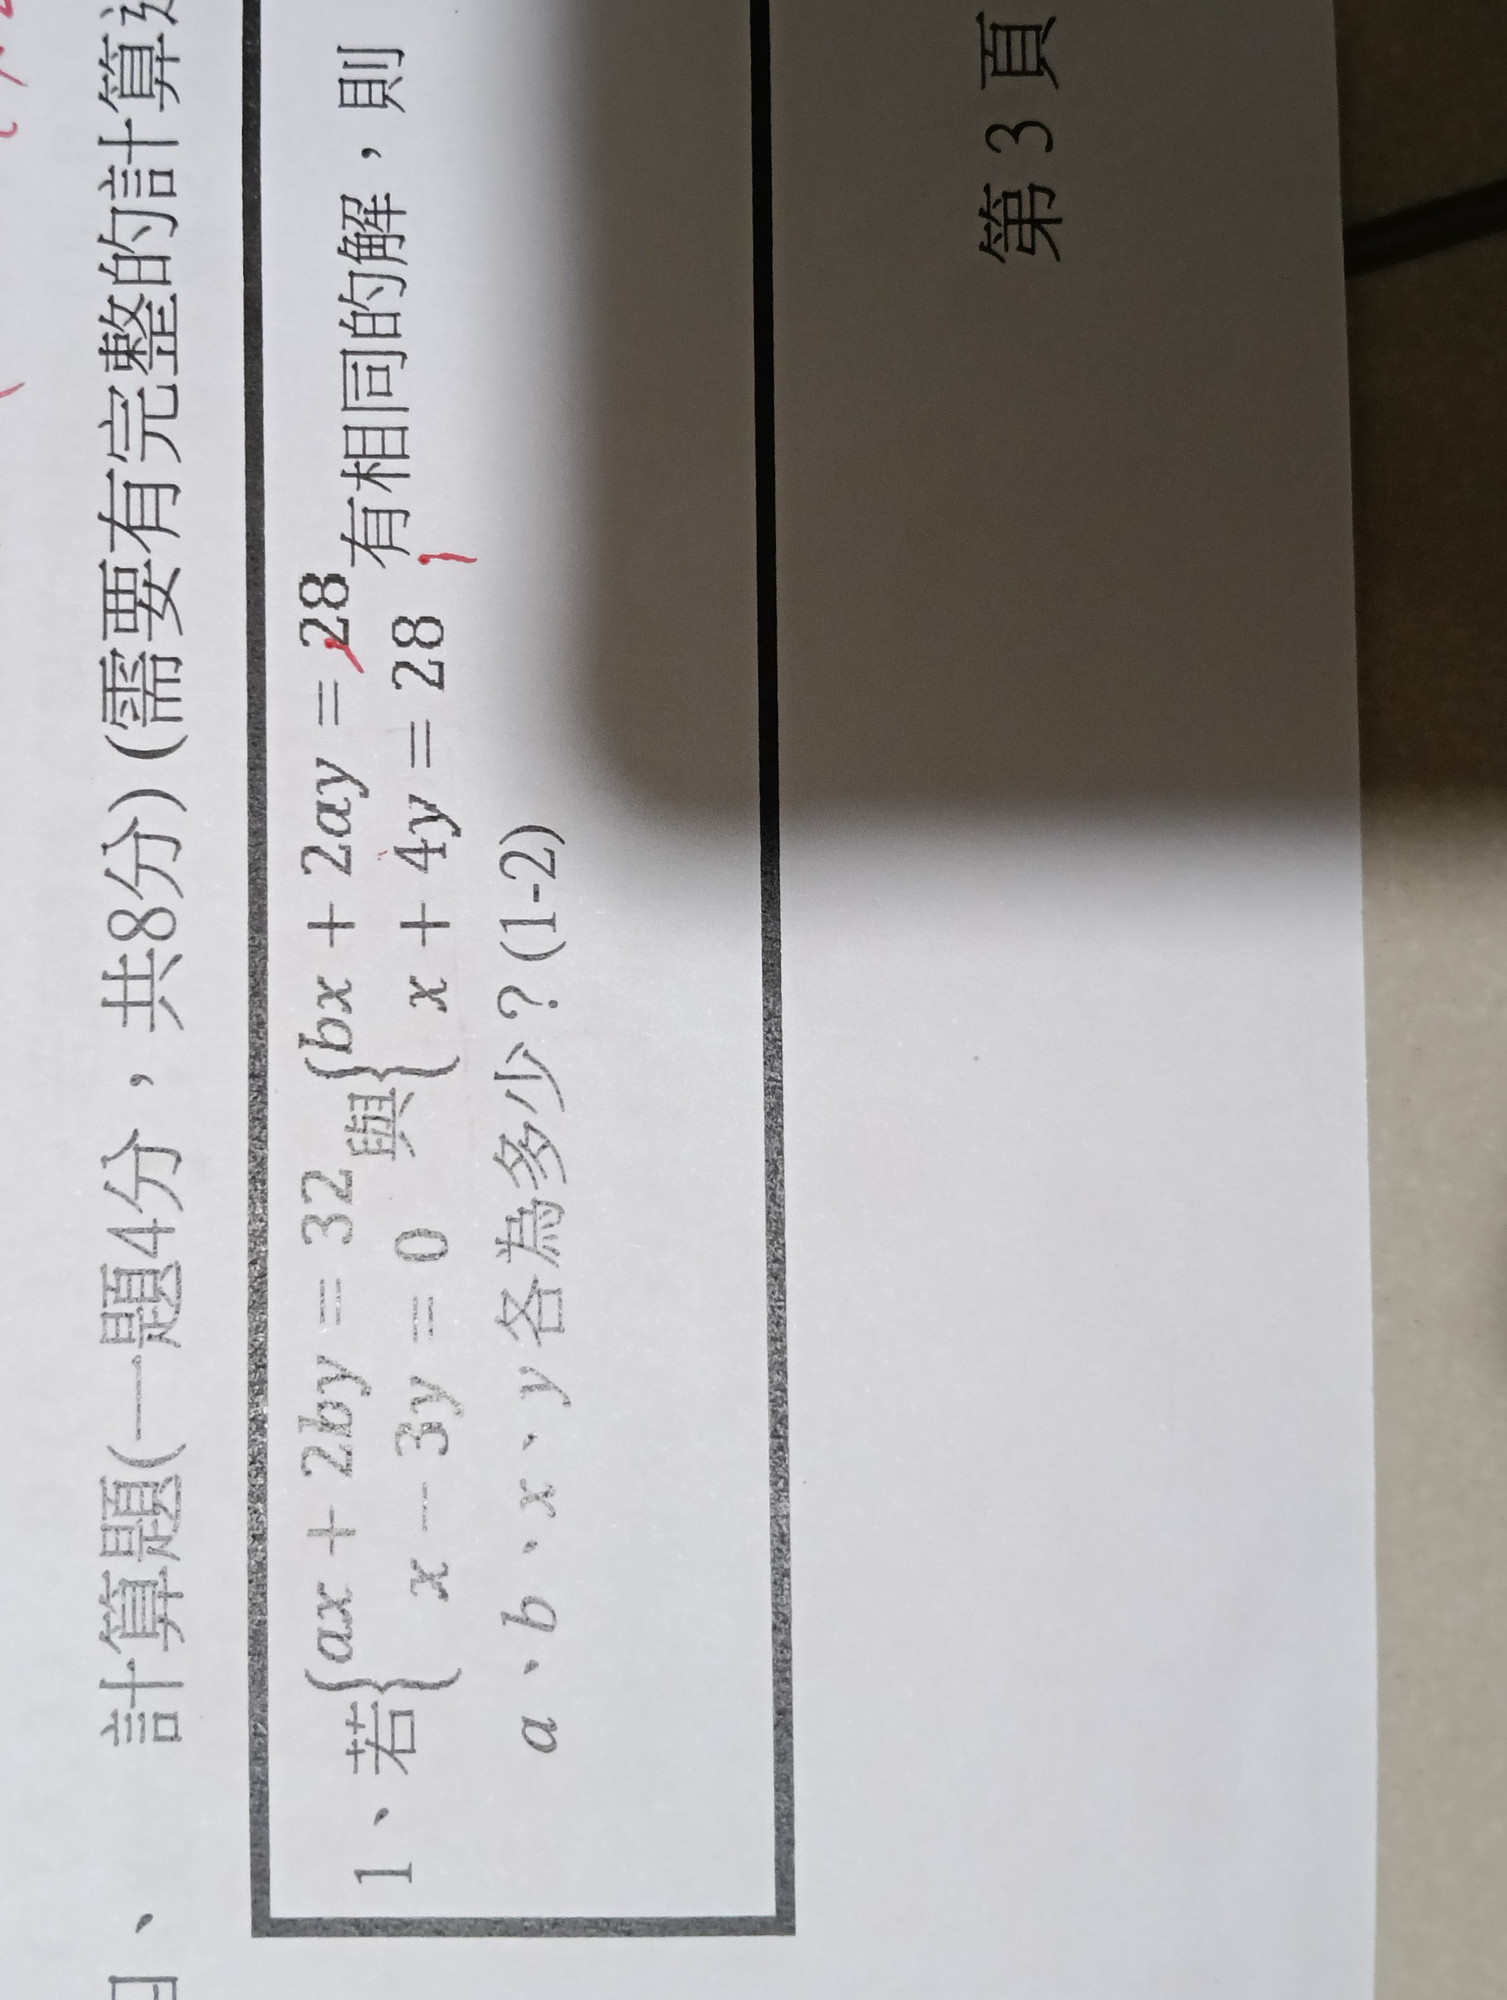 計算題(一題4分，共8分)(需要有完整的計算
1、若{ax + 2by = 32 與{bx + 2ay = 28 有相同的解，則
x − 3y = 0 x + 4y = 28
a、b、x、y各為多少？(1-2)
第 3 頁